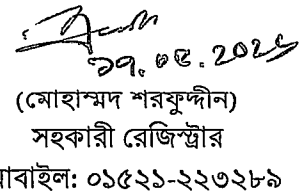 ১৭.০৫.২০২৬
(মোহাম্মদ শরফুদ্দীন)
সহকারী রেজিস্ট্রার
াবাইল: ০১৫২১-২২৩২৮৯